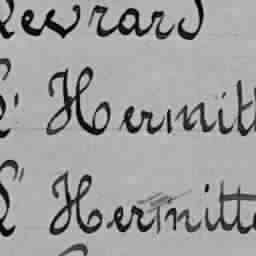 Revrard
L' Hermitt
L' Hermitte